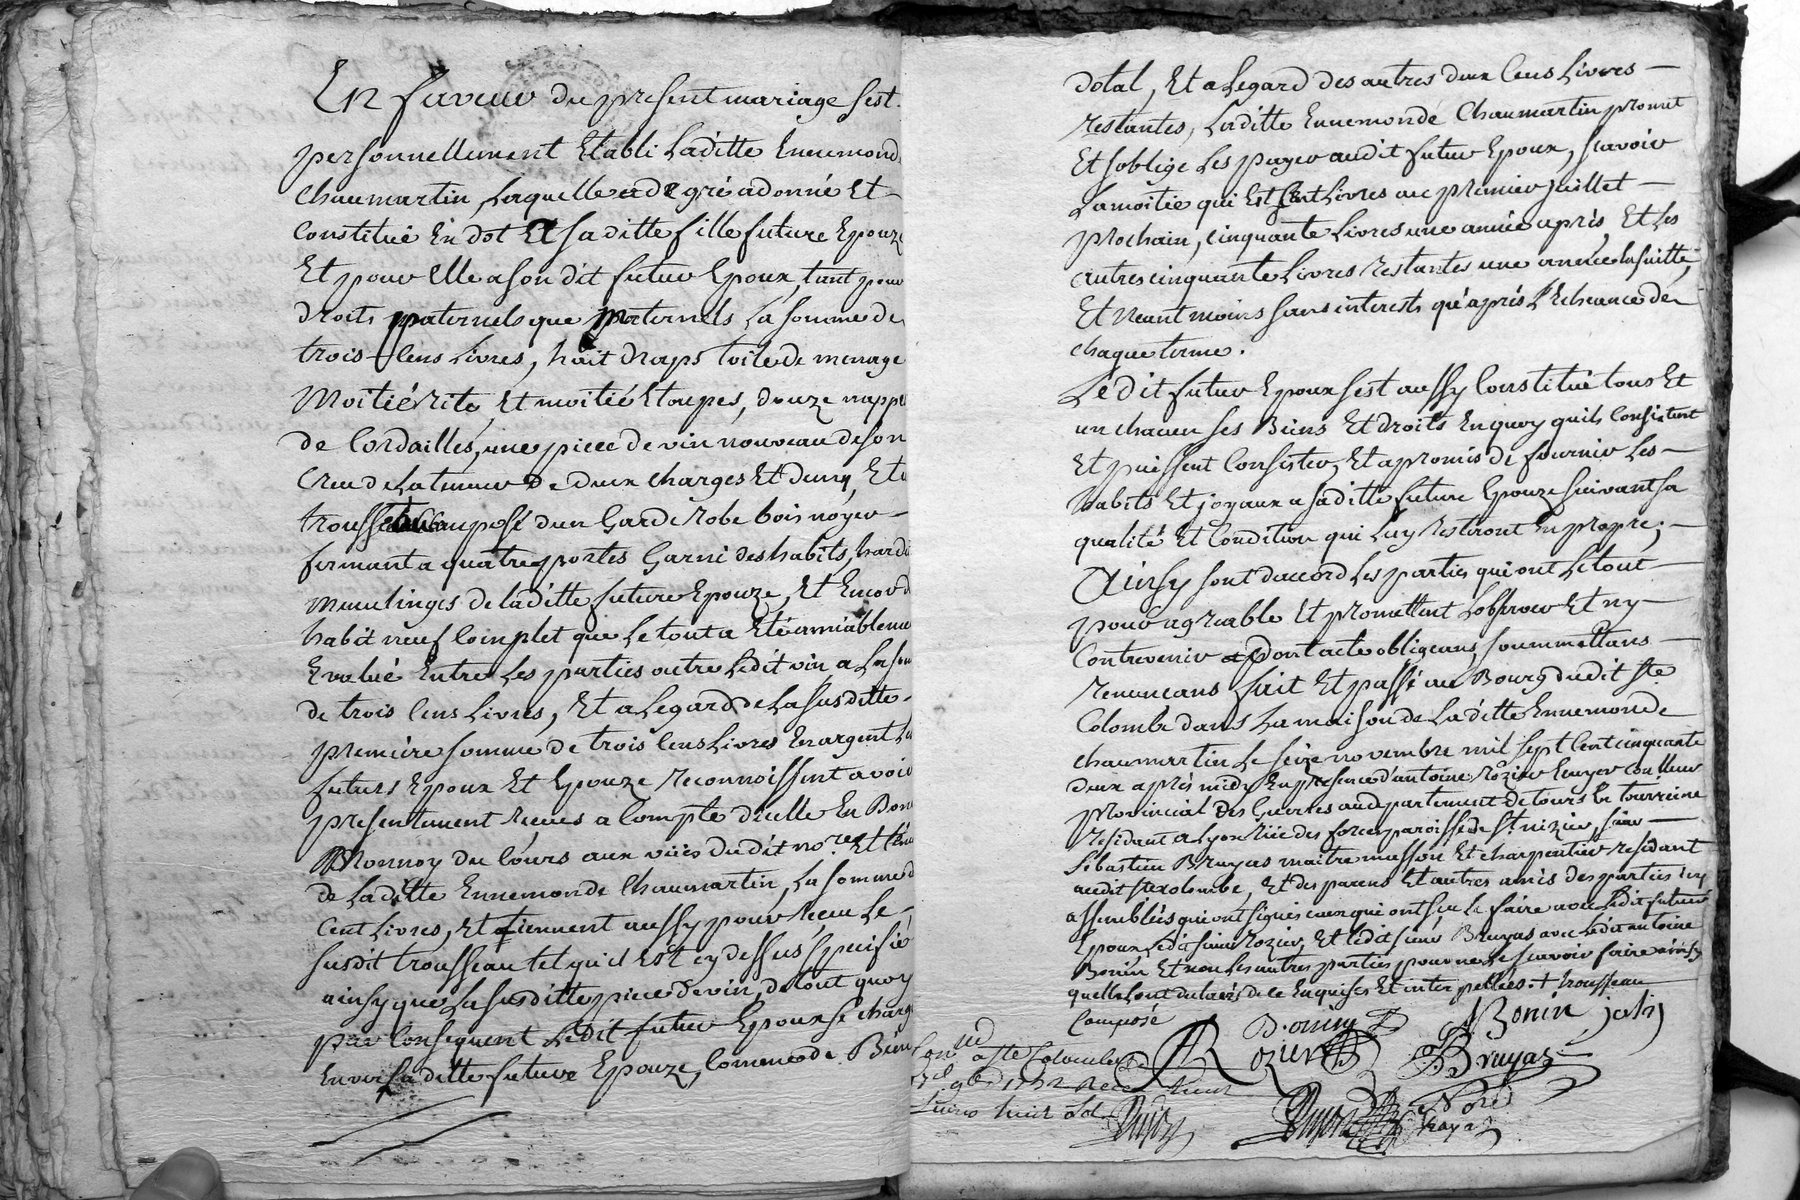 En faveur du present mariage s'est
personnellement Etabli Laditte Ennemond
chaumartin, Laquelle a de gré a donné Et
Constitué En dot Et sa ditte fille future Epouze
Et pour Elle a son dit futur Epoux, tant pour
droits paternels que maternels La somme de
trois Cens Livres, huit draps toile de menage
Moitié rite, Et moitié Etoupes, douze nappe
de Cordailles, une piece de vin nouveau de son
Crue de La teneur De deux charges Et demy, Et
trousseau composé d'un Garderobe bois noyer
fermant a quatre portes Garni des habits, hard
menu linges de laditte future Epouze, Et Encor
habit neuf Complet que Le tout a Eté amiableme
Evalué Entre Les parties outre Ledit vin a La som
de trois Cens Livres, Et a Legard de La susditte
premiere somme de trois Cens Livres En argent Le
futurs Epoux Et Epouze reconnoissent avoir
presentement reçeus a Compte d'icelle En Bonne
Monnoy du Cours aux vües dudit no.re Et tém
de Laditte Ennemonde Chaumartin, La somme d
Cent Livres, Et tiennent aussy pour reçeu Le
susdit trousseau tel qu'il Est cy dessus specifié
ainsy que La susditte piece de vin, de tout quoy
par Consequent Ledit futur Epoux se charge
Envers sa ditte future Epouze, Comme de Bien
dotal, Et a Legard des autres deux Cens Livres
restantes, Laditte Ennemonde Chaumartin promet
Et s'oblige Les payer audit futur Epoux, scavoir
La moitié qui Est Cent Livres au premier juillet
prochain, cinquante Livres une année après, Et Les
autres cinquante Livres restantes une année ensuitte,
Et neantmoins sans interests qu'après L'Echeance de
chaque terme.
Le dit futur Epoux s'est aussy Constitué tous Et
un chacun ses Biens Et droits En quoy qu'ils Consistent
Et puissent Consister, Et a promis de fournir Les
habits Et joyaux a saditte future Epouze suivant sa
qualité Et Condition qui Luy resteront En propre;
Ainsy sont d'accord Les parties qui ont Le tout
pour agreable Et promettent L'observer Et n'y
Contrevenir dont acte obligeans, soummettans
renonceans fait Et passé au Bourg dudit ste
Colombe dans La maison de Laditte Ennemonde
chaumartin Le seize novembre mil sept Cent cinquante
deux après midy En presence d'antoine Rozier Ecuyer Con.lleur
provincial Des Guerres au departement de tours En tourraine
residant a Lyon rüe des forces paroisse de St. nizier, sieur
Sebastien Bruyas maitre masson Et charpentier residant
audit ste colombe, Et des parens Et autres amis des parties icy
assemblées qui ont signés ceux qui ont sçu Le faire avec Ledit futur
Epoux Ledit sieur Rozier, Et Ledit sieur Bruyas avec Ledit antoine
Bonin Et non Les autres parties pour ne Le scavoir faire ainsy
quelles ont declaré de ce Enquises Et interpellées. + trousseau
Composé
Bonin
Rozier
Bruyas
Con.llé a ste Colombe